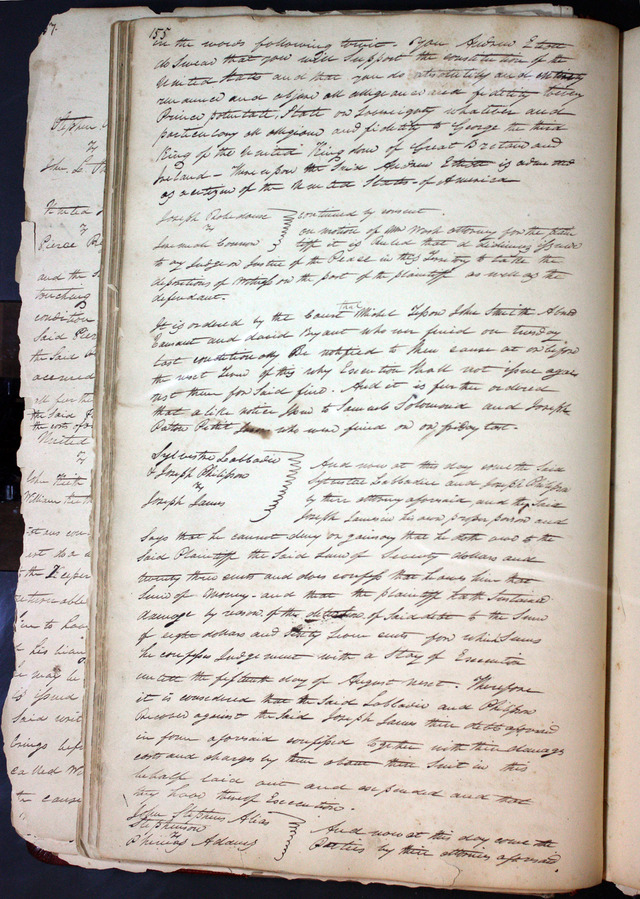 155
in the words following towit. You Andrew Elliott
do swear that you will support the constitution of the
United States and that you do absolutely and entirely
renounce and abjure all allegiance and fidelity to every
Prince potentate, State or Sovereignty whatever and
particularly all allegiance and fidelity to George the third
King of the United Kingdom of Great Britain and
Ireland - Thereupon the said Andrew Elliott is admitted
as a citizen of the United States of America
Joseph Robidoux continued by consent.
v on motion of Mr Wash attorney for the plain
Jeremiah Connor tiff it is Ruled that a dedimus issue
to any Judge or Justice of the Peace in this Territory to take the
depositions of on the part of the plaintiff as well as the
defendant.
It is ordered by the Court that Michel Tesson John Smith
and David Bryant who were fined on tuesday
last conditionally be notified to shew cause at or before
the next Term of this why Execution shall not issue agai
nst them for said fine. And it is further ordered
that a like notice issue to Samuel Solomond and Joseph
Petit Jurors who were fined on friday last.
Sylvestre Labbadie
& Joseph Philipson And now at this day come the said
v Sylvestre Labbadie and Joseph Philipson
Joseph James by their attorney aforesaid, and the said
Joseph James in his own proper person and
Says that he cannot deny or gainsay that he doth owe to the
said Plaintiffs the said Sum of Seventy dollars and
twenty three cents and does confess that he owes them that
Sum of Money. and that the plaintiffs hath Sustained
damage by reason of the detention of said debt to the Sum
of eight dollars and cents for which Sums
he confesses Judgement with a Stay of Execution
until the fifteenth day of August next. Therefore
it is considered that the said Labbadie and Philipson
Recover against the said Joseph James their debt aforesaid
in form aforesaid confessed together with their damages
costs and charges by them about their Suit in this
behalf laid out and expended and that
they have thereof Execution.
John Stephens Alias
Stephenson And now at this day come the
v Parties by their attornies aforesaid
Phineas Adams
57.
Stephen
v
United
v
Pierce
and the
touching
condition
said
the said
all further
the said
the costs
United
v
John
William
rest
to the
him to have
he may be
said
brings
called
the cause